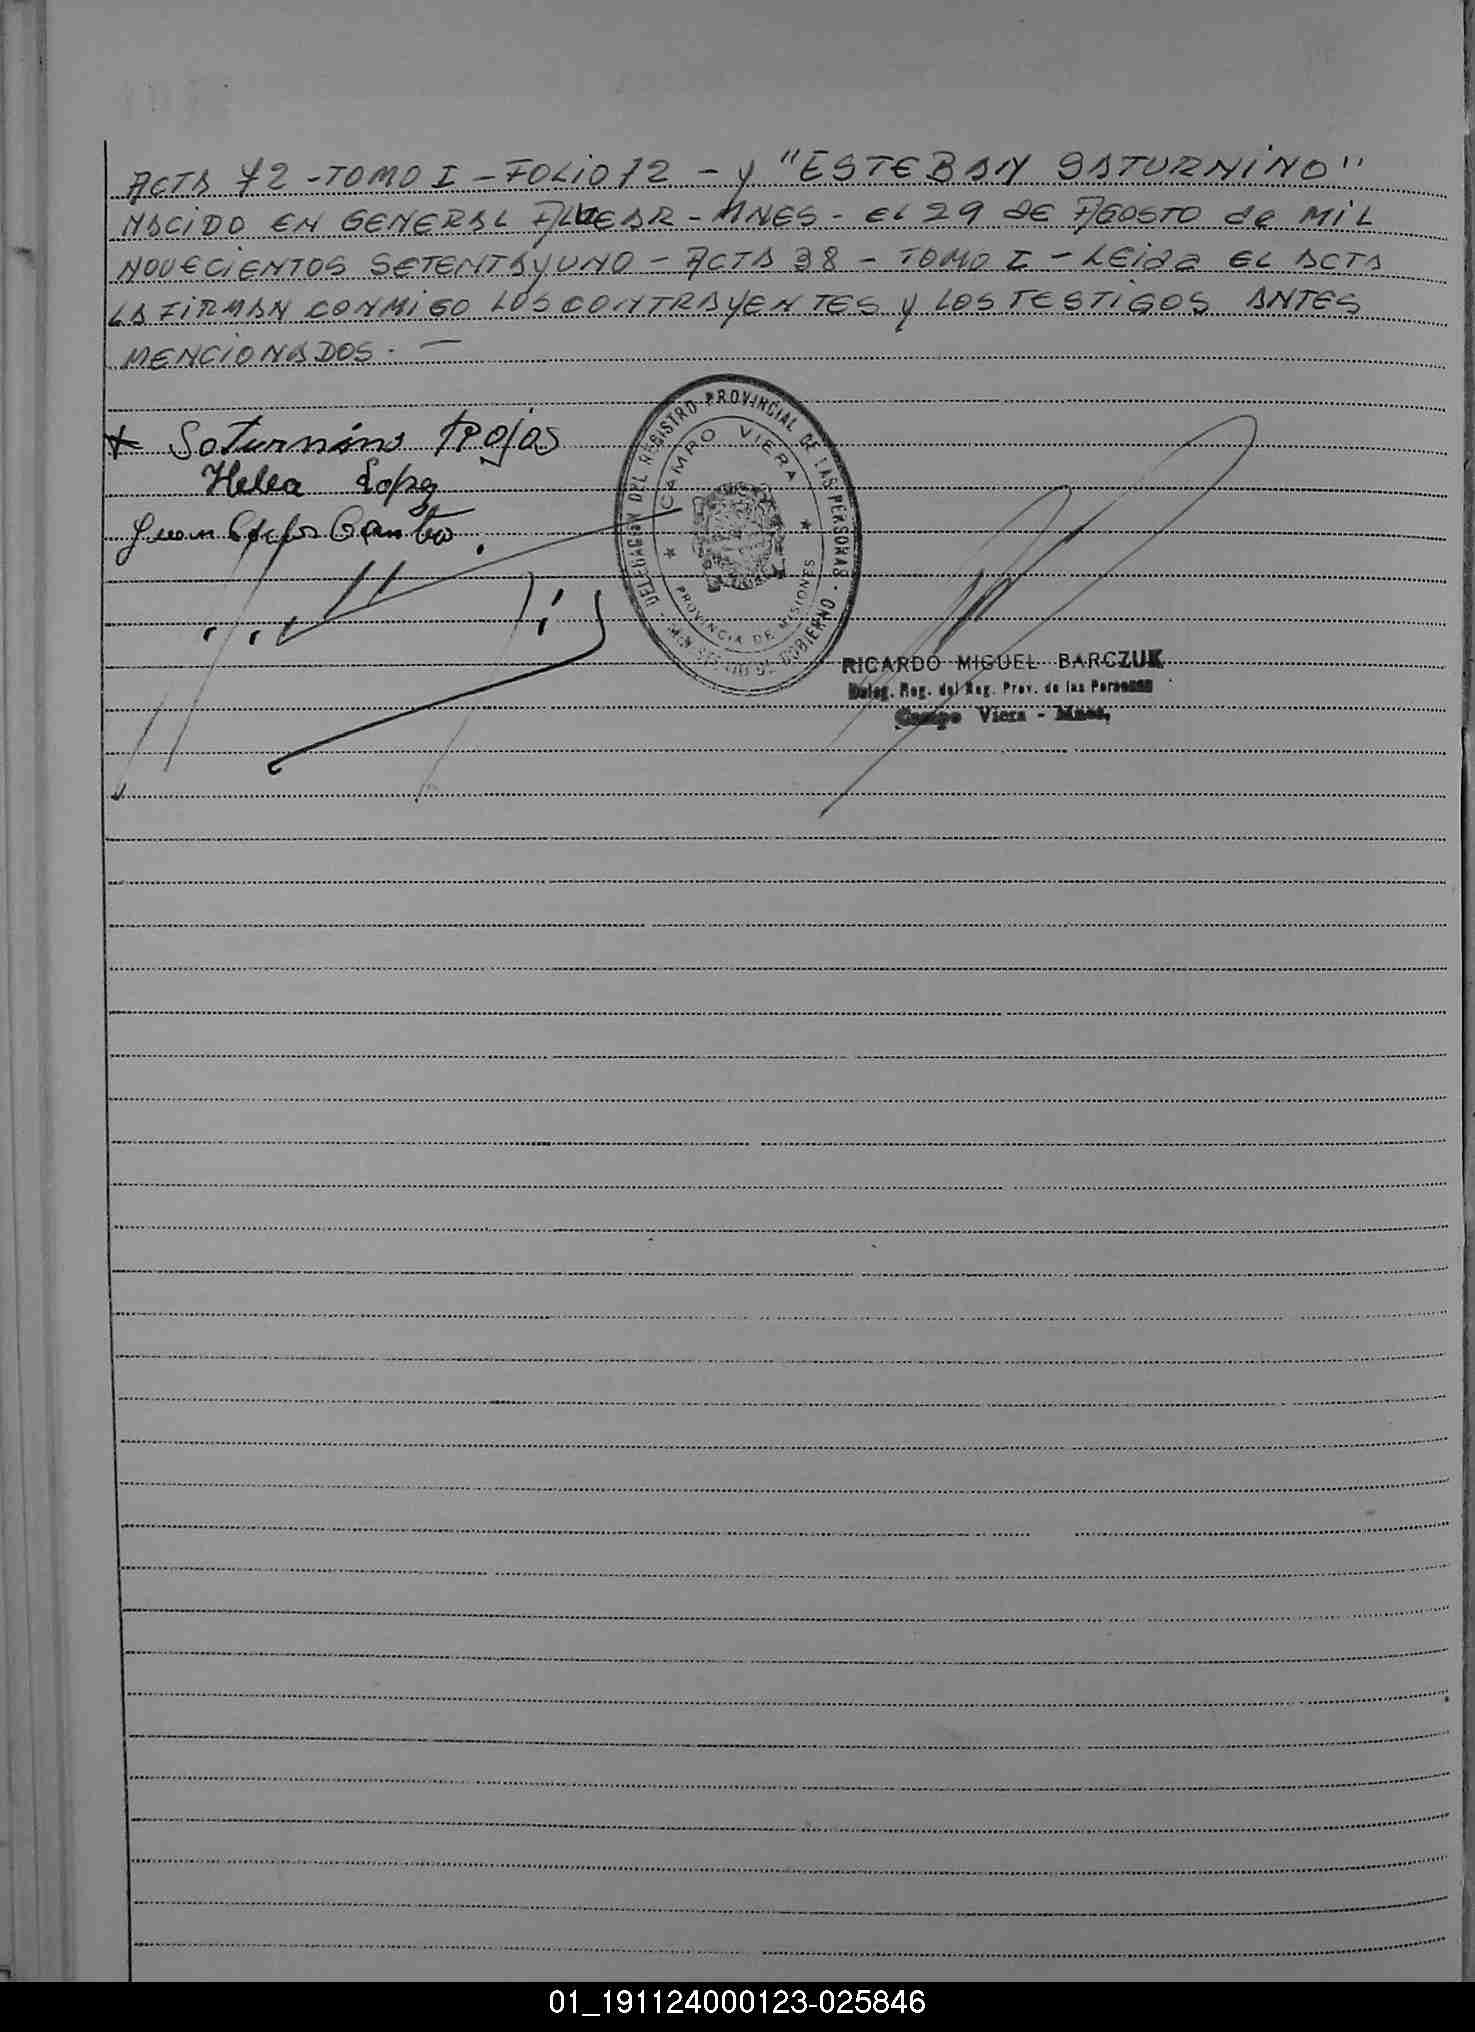 ACTA 72 - TOMO I - FOLIO 12 - y "ESTEBAN SATURNINO"
NACIDO EN GENERAL ALVEAR - MNES - EL 29 DE AGOSTO de MIL
NOVECIENTOS SETENTAYUNO - ACTA 38 - TOMO I - LEIda EL ACTA
LA FIRMAN CONMIGO LOS CONTRAYENTES y LOS TESTIGOS ANTES
MENCIONADOS. -
Saturnino Rojas
Lopez
DELEGACION DEL REGISTRO PROVINCIAL DE LAS PERSONAS - MINISTERIO DE GOBIERNO -
CAMPO VIERA
* PROVINCIA DE MISIONES *
RICARDO MIGUEL BARCZUK
Deleg. Reg. del Reg. Prov. de las Personas
Campo Viera - Mnes.
01_191124000123-025846